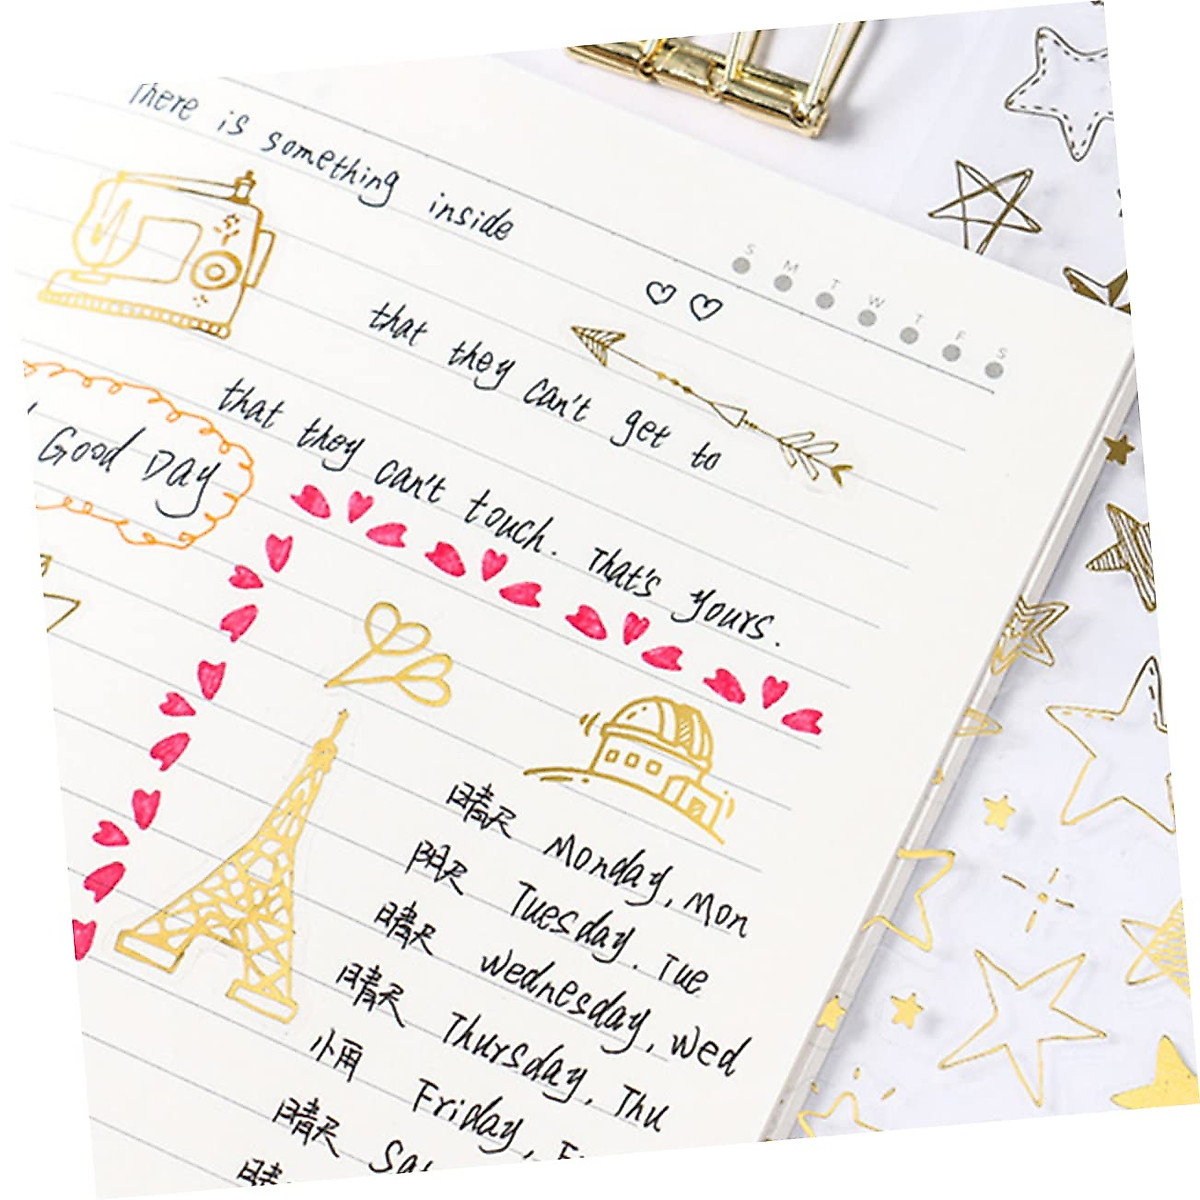 There is something inside
S M T W T F S
that they can't get to
that they can't touch. That's yours.
Good Day
晴天 Monday, Mon
阴天 Tuesday. Tue
晴天 Wednesday, Wed
晴天 Thursday, Thu
小雨 Friday, F
晴天 Sat
晴